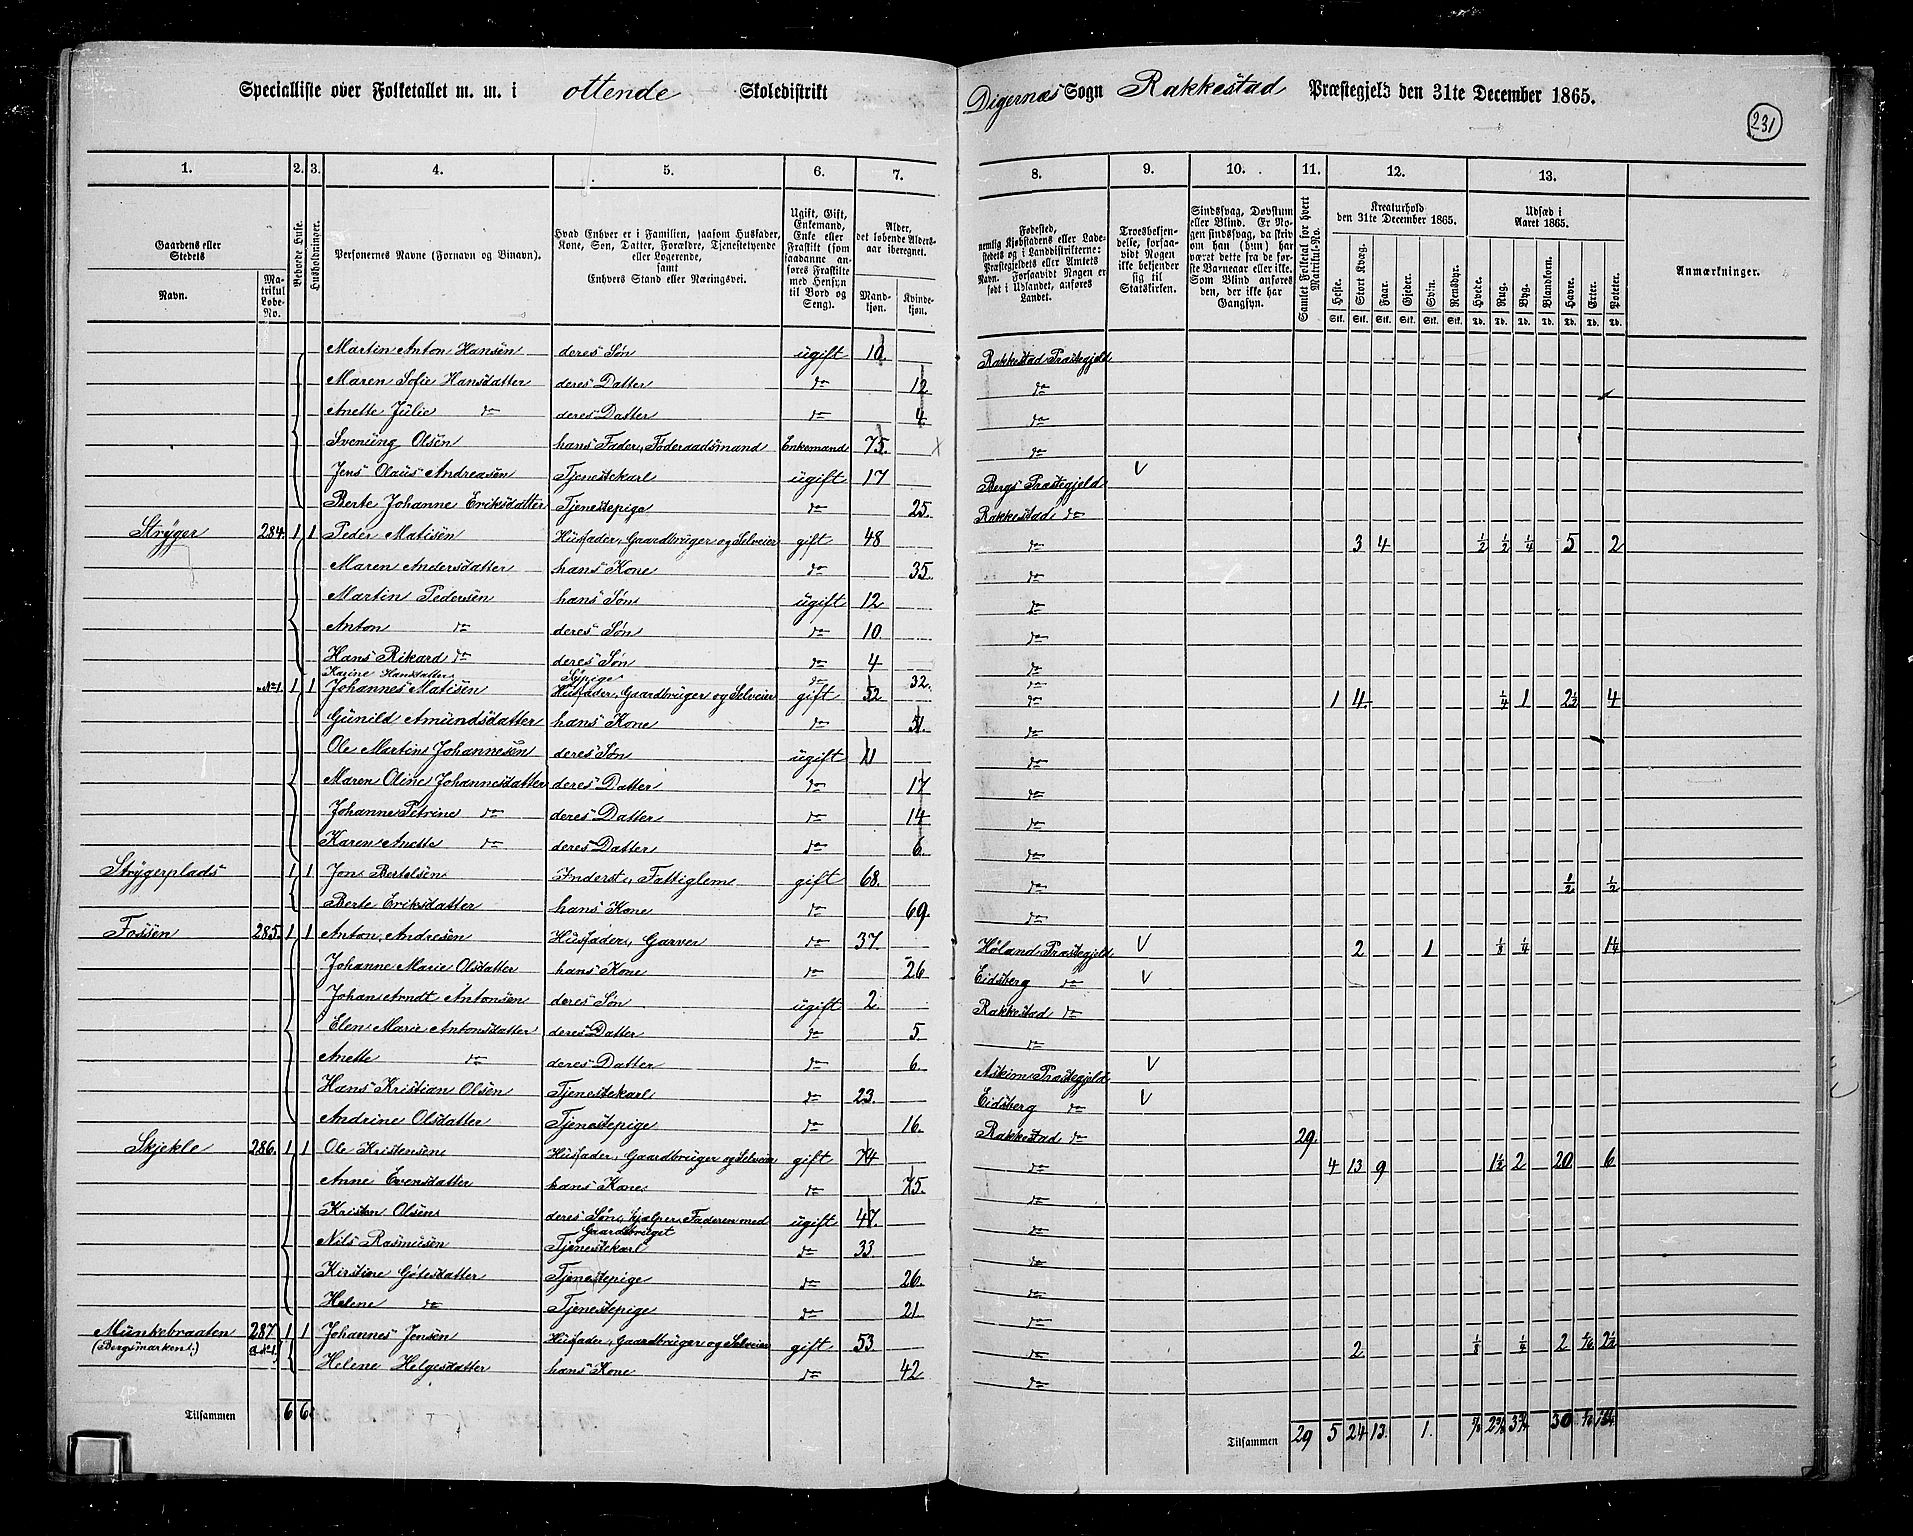 Specialliste over Folketallet m. m. i ottende Skoledistrikt Digernæs Sogn Rakkestad Præstegjeld den 31te December 1865.
231
1. 2. 3. 4. 5. 6. 7. 8. 9. 10. 11. 12. 13.
Gaardens eller Stedets
Navn.
Matrikul Løbe-No.
Beboede Huse.
Husholdninger.
Personernes Navne (Fornavn og Binavn).
Hvad Enhver er i Familien, saasom Husfader, Kone, Søn, Datter, Forældre, Tjenestetyende eller Logerende, samt Enhvers Stand eller Næringsvei.
Ugift, Gift, Enkemand, Enke eller Fraskilt (som saadanne anføres Fraskilte med Hensyn til Bord og Seng).
Alder, det løbende Alders-aar iberegnet.
Mandkjøn.
Kvindekjøn.
Fødested, nemlig Kjøbstadens eller Ladestedets og i Landdistrikterne: Præstegjeldets eller Amtets Navn. Forsaavidt Nogen er født i Udlandet, anføres Landet.
Troesbekjendelse, forsaavidt Nogen ikke bekjender sig til Statskirken.
Sindssvag, Døvstum eller Blind. Er Nogen sindssvag, da skriv om han (hun) har været dette fra de første Barneaar eller ikke. Som Blind anføres den, der ikke har Gangsyn.
Samlet Folketal for hvert Matrikul-No.
Kreaturhold den 31te December 1865.
Heste. Stort Kvæg. Faar. Gjeder. Svin. Rensdyr.
Udsæd i Aaret 1865.
Hvede. Rug. Byg. Blandkorn. Havre. Erter. Poteter.
Anmærkninger.
Martin Anton Hansen deres Søn ugift 10 Rakkestad Præstegjeld
Maren Sofie Hansdatter deres Datter do 12 do
Anette Julie do deres Datter do 4 do
Svenung Olsen hans Fader, Føderaadsmand Enkemand 75. do
Jens Olaus Andreasen Tjenestekarl ugift 17 Bergs Præstegjeld V
Berte Johanne Eriksdatter Tjenestepige do 25. Rakkestad do
Stryger 284. 1 1 Peder Matisen Husfader, Gaardbruger og Selveier gift 48 do 3 4 ½ ½ ¼ 5 2
Maren Andersdatter hans Kone do 35. do
Martin Pedersen hans Søn ugift 12 do
Anton do deres Søn do 10. do
Hans Rikard do deres Søn do 4 do
Karine Hansdatter Sypige do 32. do
1 1 Johannes Matisen Husfader, Gaardbruger og Selveier gift 52 do 1 4 ¼ 1 2½ 4
Gunild Amundsdatter hans Kone do 51. do
Ole Martin Johannesen deres Søn ugift 11 do
Maren Oline Johannesdatter deres Datter do 17 do
Johanne Petrine do deres Datter do 14 do
Karen Anette do deres Datter do 6. do
Strygerplads 1 1 Jon Bertelsen Inderst, Fattiglem gift 68. do ½ ½
Berte Eriksdatter hans Kone do 69. do
Fossen 285. 1 1 Anton Andresen Husfader, Garver do 37. Høland Præstegjeld V 2 1 ⅛ ¼ 1¼
Johanne Marie Olsdatter hans Kone do 26 Eidsberg do V
Johan Arndt Antonsen deres Søn ugift 2 Rakkestad do
Elen Marie Antonsdatter deres Datter do 5. do
Anette do deres Datter do 6. Askim Præstegjeld V
Hans Kristian Olsen Tjenestekarl do 23. Eidsberg do V
Andrine Olsdatter Tjenestepige do 16. Rakkestad do 29
Skjekle 286. 1 1 Ole Kristensen Husfader, Gaardbruger og Selveier gift 74 do 4 13 9 1½ 2 20 6
Anne Evensdatter hans Kone do 75. do
Kristen Olsen deres Søn, hjælper Faderen med Gaardsbruget ugift 47. do
Nils Rasmusen Tjenestekarl do 33. do
Kirstine Götesdatter Tjenestepige do 26. do
Helene do Tjenestepige do 21 do
Munkebraaten (Bergsmarken) 287 1 1 Johannes Jensen Husfader, Gaardbruger og Selveier gift 53 do 2 ⅛ 2 2½
Helene Helgesdatter hans Kone do 42 do
Tilsammen 6 6
Tilsammen 29 5 24 13. 1. 30